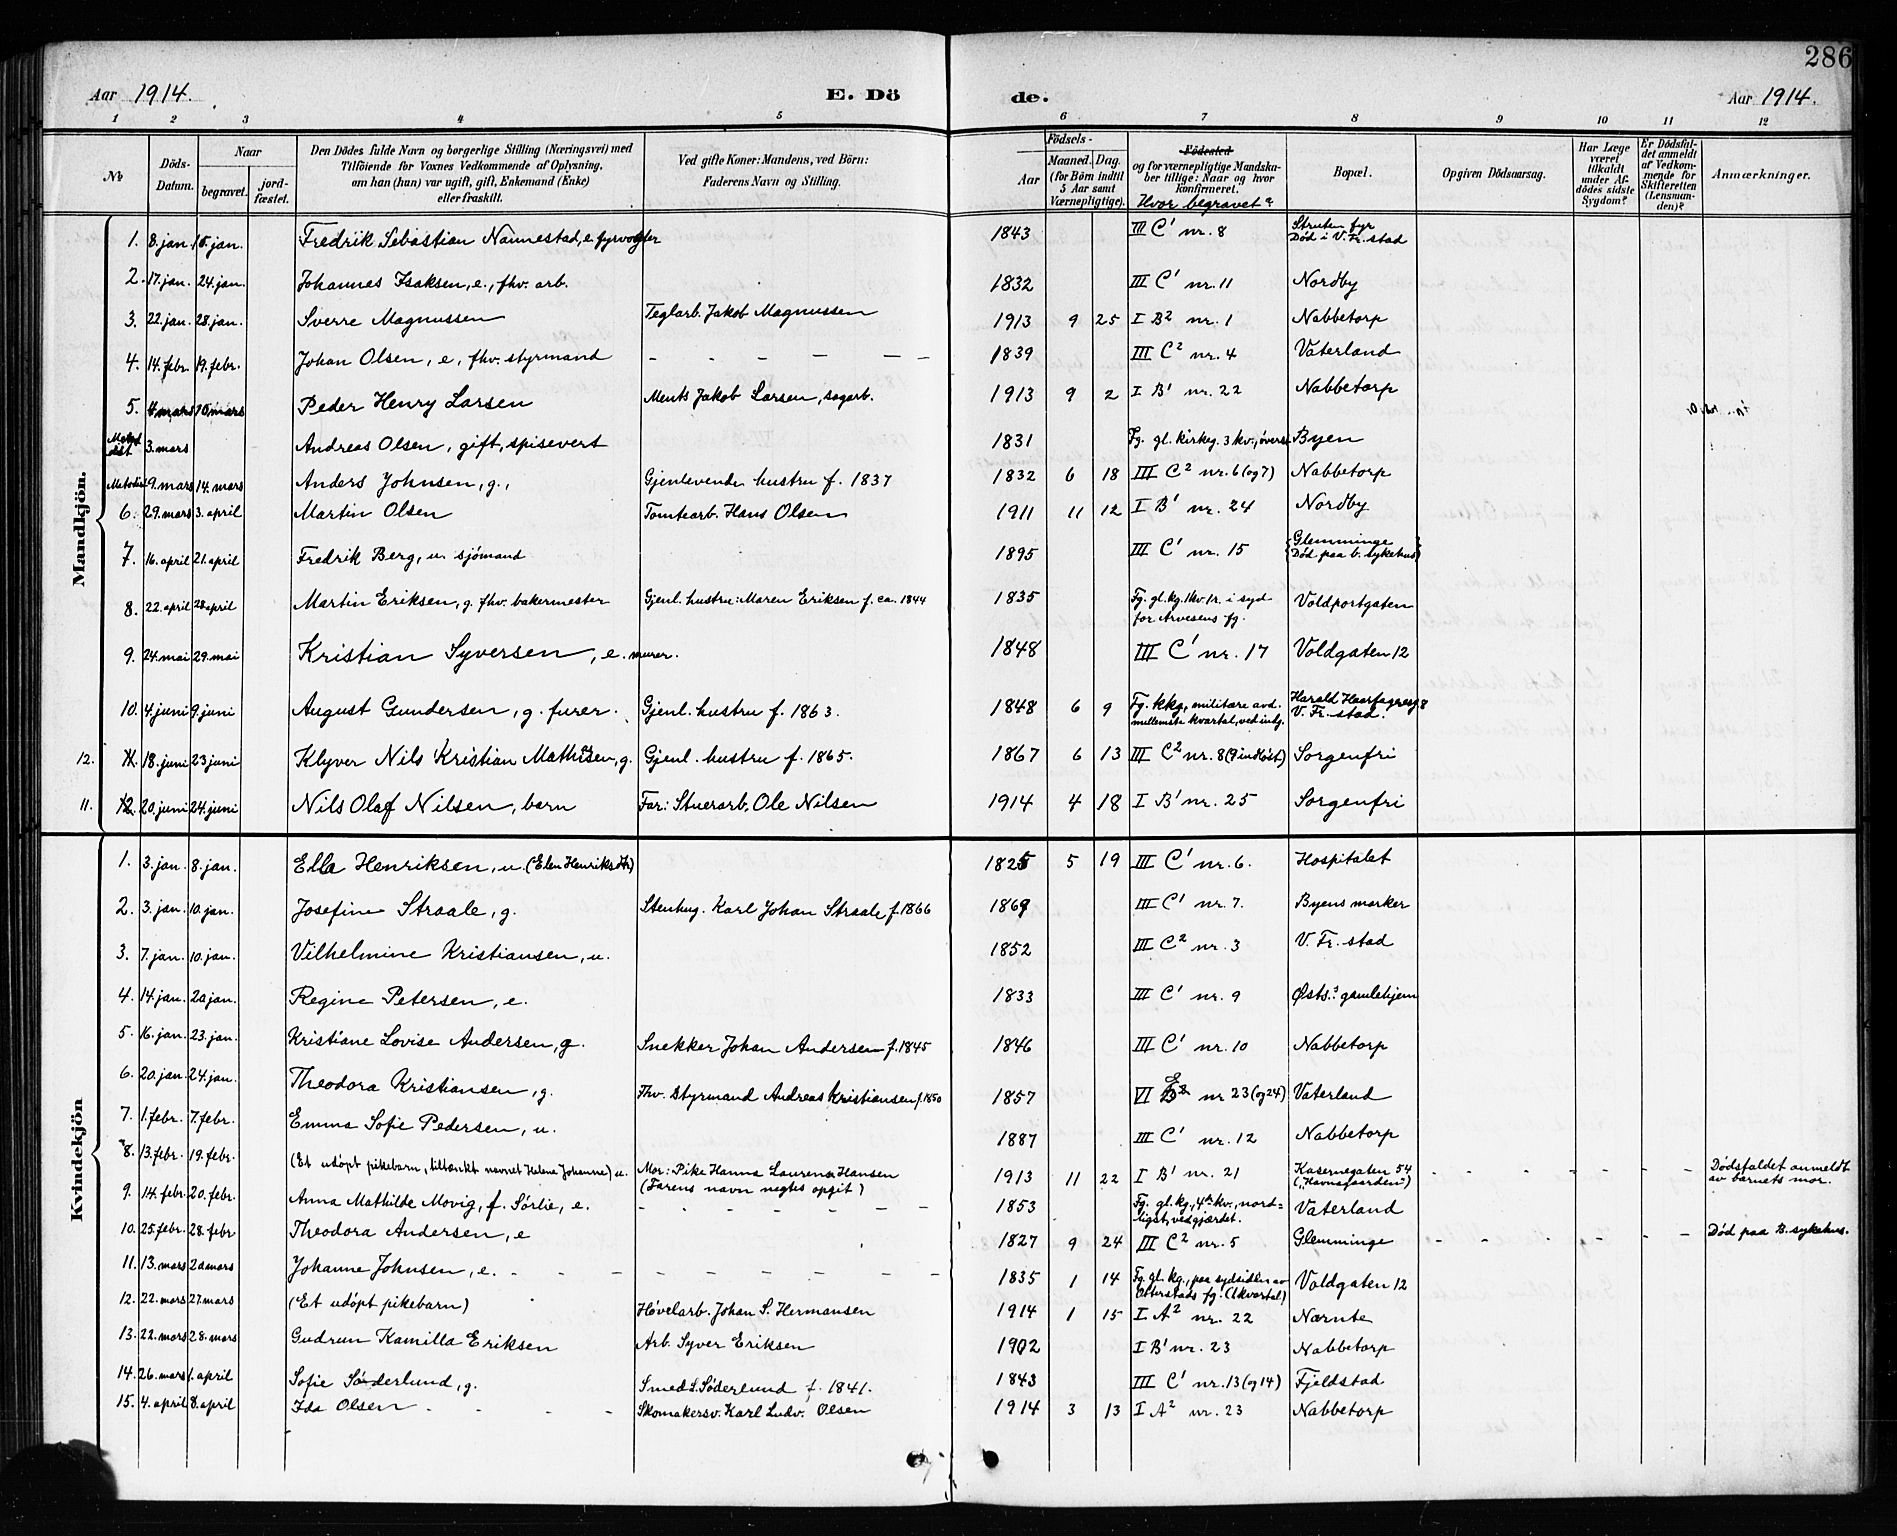 286
Aar 1914. E. Dö de. Aar 1914.
1 2 3 4 5 6 7 8 9 10 11 12
No Döds-Datum. Naar begravet. jord-fæstet. Den Dödes fulde Navn og borgerlige Stilling (Næringsvei) med Tilföiende for Voxnes Vedkommende af Oplysning, om han (hun) var ugift, gift, Enkemand (Enke) eller fraskilt. Ved gifte Koner: Mandens, ved Börn: Faderens Navn og Stilling. Födsels- Aar Maaned. Dag. (for Börn indtil 5 Aar samt Værnepligtige). Födested og for værnepligtige Mandskaber tillige: Naar og hvor konfirmeret. Hvor begravet? Bopæl. Opgiven Dödsaarsag. Har Læge været tilkaldt under Afdödes sidste Sygdom? Er Dödsfaldet anmeldt af Vedkommende for Skifteretten (Lensmanden)? Anmærkninger.
Mandkjön.
1. 8. jan. 15. jan. Fredrik Sebastian Nannestad, e. fyrvogter 1843 III C1 nr. 8 Struten fyr Död i V. Fr. stad
2. 17. jan. 24. jan. Johannes Isaksen, e., fhv. arb. 1832 III C1 nr. 11 Nordby
3. 22. jan. 28. jan. Sverre Magnussen Teglarb. Jakob Magnussen 1913 9 25 I B2 nr. 1 Nabbetorp
4. 14. febr. 19. febr. Johan Olsen, e, fhv. styrmand – – – – – 1839 III C2 nr. 4 Vaterland
5. 4 mars 10 mars Peder Henry Larsen Ments Jakob Larsen, sagarb. 1913 9 2 I B1 nr. 22 Nabbetorp
3. mars Andreas Olsen, gift, spisevert 1831 Fg. gl. kirkeg. 3 kv., övers. Byen
Metodist 9. mars 14. mars Anders Johnsen, g., Gjenlevende hustru f. 1837 1832 6 18 III C2 nr. 6 (og 7) Nabbetorp
6. 29. mars 3. april Martin Olsen Tomtearb. Hans Olsen 1911 11 12 I B1 nr. 24 Nordby
7. 16. april 21. april Fredrik Berg, u. sjömand 1895 III C1 nr. 15 Glemminge Död paa b. sykehus
8. 22. april 28 april Martin Eriksen, g. fhv. bakermester Gjenl. hustru: Maren Eriksen f. ca. 1844 1835 Fg. gl. kg. 1kv 1r. i syd for Arvesens fg. Voldportgaten
9. 24. mai 29. mai Kristian Syversen, e. murer. 1848 III C1 nr. 17 Voldgaten 12
10. 4. juni 9. juni August Gundersen, g. furer. Gjenl. hustru f. 1863. 1848 6 9 Fg. kkg, militære avd. mellemste kvartal, ved indg. Harald Haarfagresg. 8 V. Fr. stad.
12. 11. 18. juni 23 juni Klyver Nils Kristian Mathisen, g. Gjenl. hustru f. 1865. 1867 6 13 III C2 nr. 8 (9 indlöst) Sorgenfri
11. 12. 20. juni 24. juni Nils Olaf Nilsen, barn Far: Stuerarb. Ole Nilsen 1914 4 18 I B1 nr. 25 Sorgenfri
Kvindekjön
1. 3. jan. 8. jan. Ella Henriksen, u. (Elen Henriksdtr) 1825 5 19 III C1 nr. 6. Hospitalet
2. 3. jan. 10. jan. Josefine Straale, g. Stenhug. Karl Johan Straale f. 1866 1869 III C1 nr. 7. Byens marker
3. 7. jan. 10. jan. Vilhelmine Kristiansen, u. 1852 III C2 nr. 3 V. Fr. stad
4. 14. jan. 20 jan. Regine Petersen, e. 1833 III C1 nr. 9 Østs. gamlehjem
5. 16. jan. 23. jan. Kristiane Lovise Andersen, g. Snekker Johan Andersen f. 1845 1846 III C1 nr. 10 Nabbetorp
6. 20. jan. 24. jan. Theodora Kristiansen, g. Fhv. styrmand Andreas Kristiansen f. 1850 1857 VI nr 23 (og 24) Vaterland
7. 1. febr. 7. febr. Emma Sofie Pedersen, u. 1887 III C1 nr. 12 Nabbetorp
8. 13. febr. 19. febr. (Et udöpt pikebarn, tiltænkt navnet Helene Johanne) u. Mor: Pike Hanna Laurena Hansen (Farens navn negtes opgit) 1913 11 22 I B1 nr. 21 Kasernegaten 54 ("Havnsgaarden") – – – – – – Dödsfaldet anmeldt av barnets mor.
9. 14. febr. 20. febr. Anna Mathilde Movig, f. Sörlie, e. – – – – – 1853 Fg. gl. kg., 4de kv., nordligst, ved gjærdet. Vaterland
10. 25. febr. 28. febr Theodora Andersen, e 1827 9 24 III C2 nr. 5 Glemminge – – – – – – Död paa B. sykehus.
11. 13. mars 20 mars Johanne Johnsen, e. – – – – – 1835 1 14 Fg. gl. kg., paa sydsiden av fg. (1 kvartal) Voldgaten 12
12. 22. mars 27. mars (Et udöpt pikebarn) Hövelarb. Johan S. Hermansen 1914 1 15 I A2 nr. 22 Nærnte
13. 22. mars 28. mars Gudrun Kamilla Eriksen Arb. Syver Eriksen 1902 I B1 nr. 23 Nabbetorp
14. 26. mars 1. april Sofie Söderlund, g. Smed S. Söderlund f. 1841. 1843 III C1 nr. 13 (og 14) Fjeldstad
15. 4. april 8. april Ida Olsen – – – – Skomakersv. Karl Ludv. Olsen 1914 3 13 I A2 nr. 23 Nabbetorp